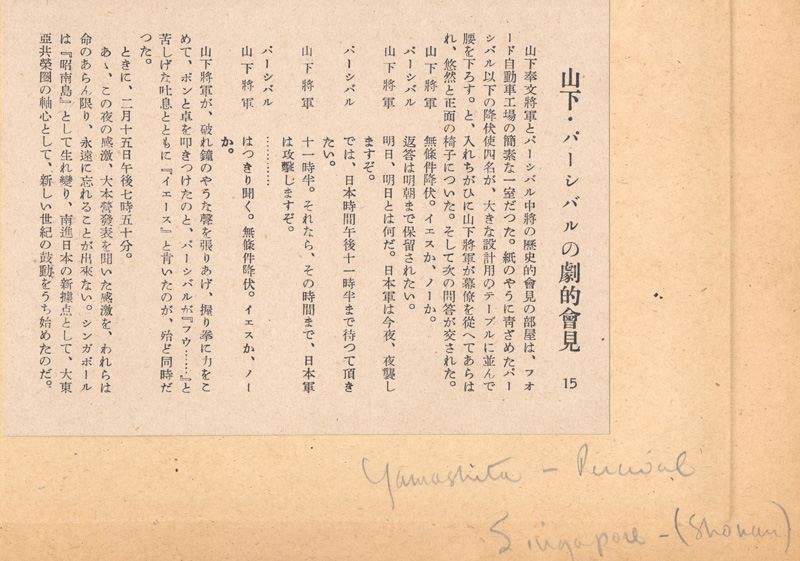 山下・パーシバルの劇的會見 15
山下奉文將軍とパーシバル中將の歴史的會見の部屋は、フオ
ード自動車工場の簡素な一室だつた。紙のやうに靑ざめたパー
シバル以下の降伏使四名が、大きな設計用のテーブルに並んで
腰を下ろす。と、入れちがひに山下將軍が幕僚を從へてあらは
れ、悠然と正面の椅子についた。そして次の問答が交された。
山下將軍 無條件降伏。イエスか、ノーか。
パーシバル 返答は明朝まで保留されたい。
山下將軍 明日、明日とは何だ。日本軍は今夜、夜襲し
ますぞ。
パーシバル では、日本時間午後十一時半まで待つて頂き
たい。
山下將軍 十一時半。それなら、その時間まで、日本軍
は攻擊しますぞ。
パーシバル …………
山下將軍 はつきり聞く。無條件降伏。イエスか、ノー
か。
山下將軍が、破れ鐘のやうな聲を張りあげ、握り拳に力をこ
めて、ポンと卓を叩きつけたのと、パーシバルが『フウ……』と
苦しげた吐息とともに『イエース』と肯いたのが、殆ど同時だ
つた。
ときに、二月十五日午後七時五十分。
あゝ、この夜の感激、大本營發表を聞いた感激を、われらは
命のあらん限り、永遠に忘れることが出來ない。シンガポール
は『昭南島』として生れ變り、南進日本の新據点として、大東
亞共榮圈の軸心として、新しい世紀の鼓動をうち始めたのだ。
Yamashita - Percival
Singapore - (Shonan)